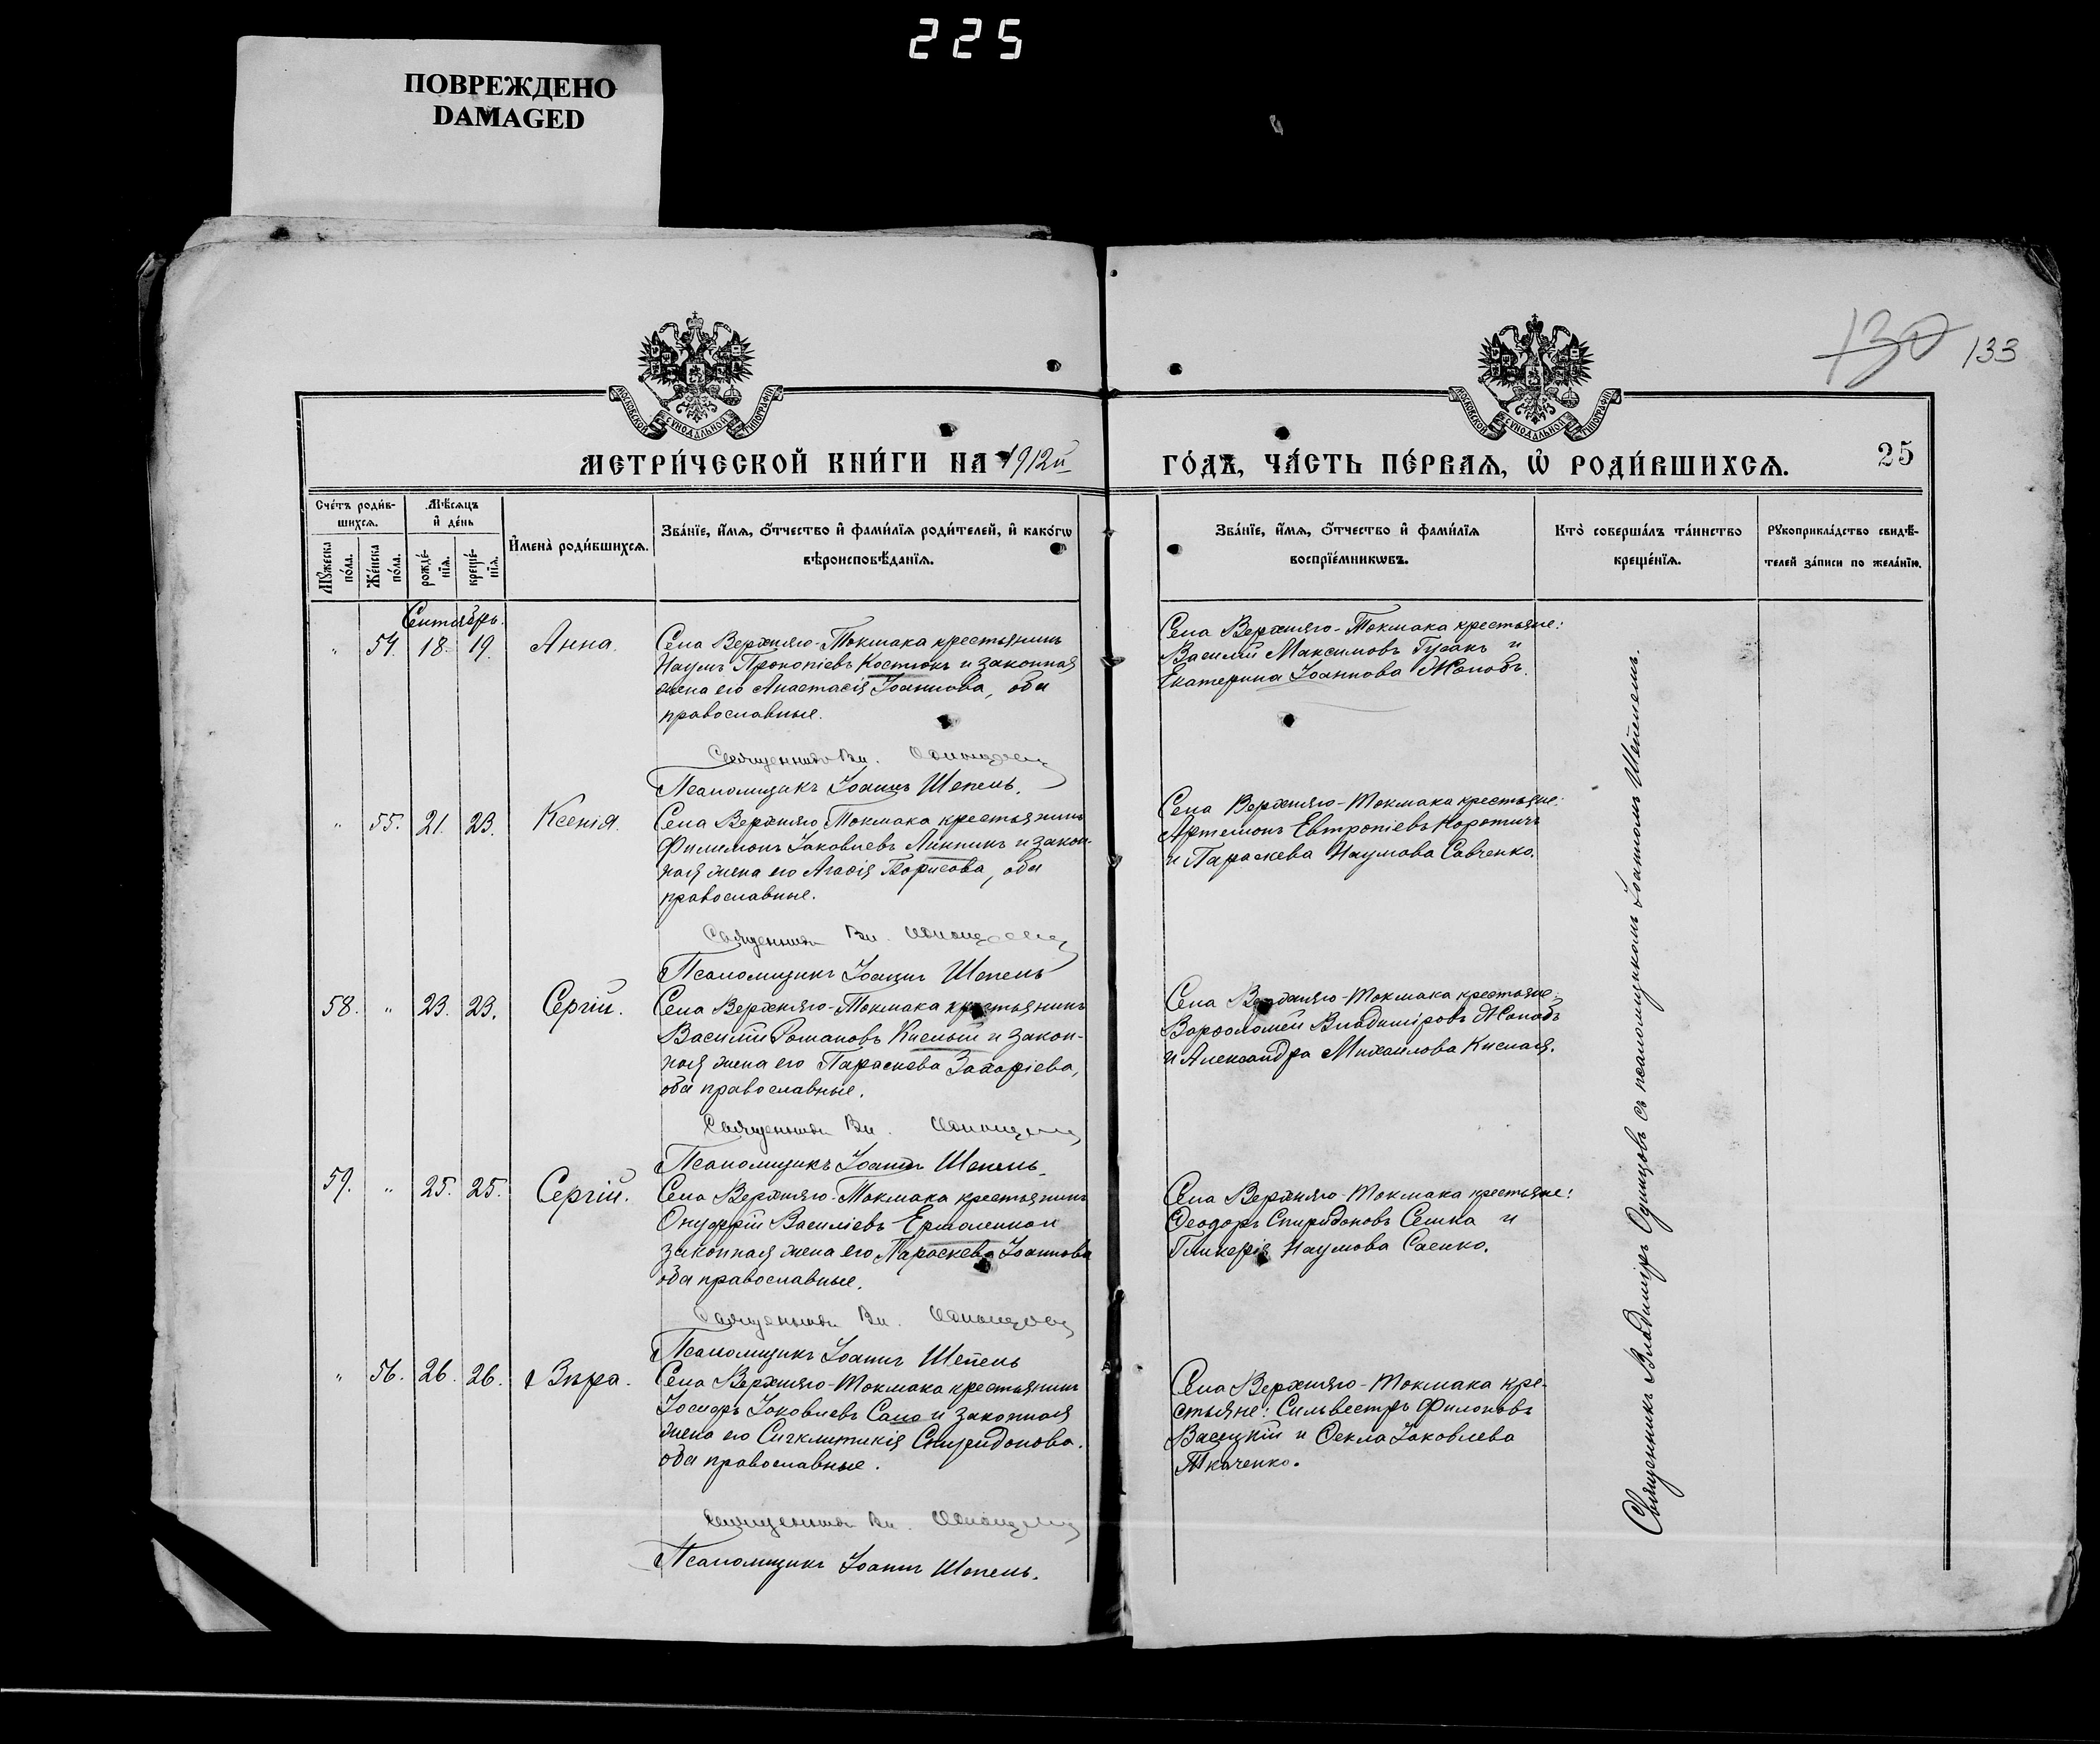 225
ПОВРЕЖДЕНО
DAMAGED
130 133
МОСКОВСКОЙ СѴНОДАЛЬНОЙ ТИПОГРАФІИ
МОСКОВСКОЙ СѴНОДАЛЬНОЙ ТИПОГРАФІИ
МЕТРИ́ЧЕСКОЙ КНИ́ГИ НА 1912й
ГО́ДЪ, ЧА́СТЬ ПЕ́РВАЯ, Ѽ РОДИ́ВШИХСЯ. 25
Сче́тъ роди́в-
шихся.
Мѣ́сяцъ
и де́нь
Му́жеска по́ла.
Же́нска по́ла.
рожде́-
нія.
креще́-
нія.
Имена̀ роди́вшихся.
Зва́ніе, и́мя, о́тчество и фами́лія роди́телей, и како́гѡ
вѣроисповѣ́данія.
Зва́ніе, и́мя, о́тчество и фами́лія
воспріе́мникѡвъ.
Кто̀ соверша́лъ та́инство
креще́нія.
Рукоприкла́дство свидѣ́-
телей за́писи по жела́нію.
Сентябрь.
" 54. 18. 19. Анна.
Села Верхняго-Токмака крестьянинъ
Наумъ Прокопіевъ Костюкъ и законная
жена его Анастасія Іоаннова, оба
православные.
Священникъ Вл. Одинцовъ
Псаломщикъ Іоаннъ Шепель.
Села Верхняго-Токмака крестьяне:
Василій Максимовъ Гусакъ и
Екатерина Іоаннова Жолобъ.
" 55. 21. 23. Ксенія.
Села Верхняго-Токмака крестьянинъ
Филимонъ Іаковлевъ Линникъ и закон-
ная жена его Агафія Борисова, оба
православные.
Священникъ Вл. Одинцовъ
Псаломщикъ Іоаннъ Шепель
Села Верхняго-Токмака крестьяне:
Артемонъ Евтропіевъ Коротичъ
и Параскева Наумова Савченко.
58. " 23. 23. Сергій.
Села Верхняго-Токмака крестьянинъ
Василій Романовъ Кислый и закон-
ная жена его Параскева Захаріева,
оба православные.
Священникъ Вл. Одинцовъ
Псаломщикъ Іоаннъ Шепель.
Села Верхняго-Токмака крестьяне:
Варфоломей Владиміровъ Жолобъ
и Александра Михаилова Кислая.
59. " 25. 25. Сергій.
Села Верхняго-Токмака крестьянинъ
Онуфрій Василіевъ Ермоленко и
законная жена его Параскева Іоаннова
оба православные.
Священникъ Вл. Одинцовъ
Псаломщикъ Іоаннъ Шепель
Села Верхняго-Токмака крестьяне:
Ѳеодоръ Спиридоновъ Сешка и
Гликерія Наумова Саенко.
" 56. 26. 26. Вѣра.
Села Верхняго-Токмака крестьянинъ
Іосифъ Іаковлевъ Сало и законная
жена его Сигклитикія Спиридонова.
оба православные.
Священникъ Вл. Одинцовъ
Псаломщикъ Іоаннъ Шепель.
Села Верхняго-Токмака кре-
стьяне: Сильвестръ Филоновъ
Васецкій и Ѳекла Іаковлева
Ткаченко.
Священникъ Владиміръ Одинцовъ съ псаломщикомъ Іоанномъ Шепелемъ.